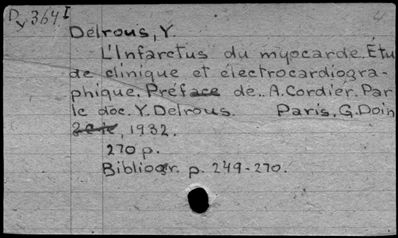 Dy 364 I
Delrous, Y.
L'Infarctus du myocarde. Étu
de clinique et électrocardiogra-
phique. Préface de.. A. Cordier. Par
le doc. Y. Delrous. Paris, G. Doin
& Cie, 1932.
270 p.
Bibliogr. p. 249-270.